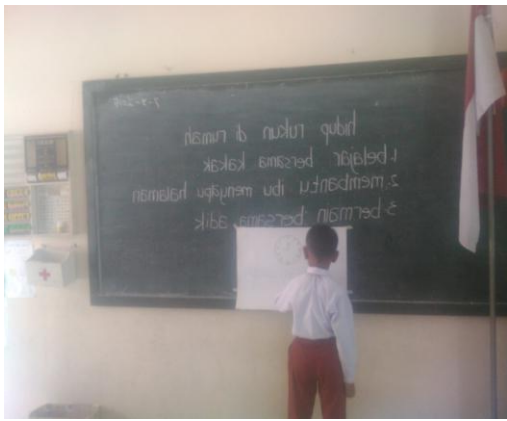 hidup rukun di rumah
1. belajar bersama kakak
2. membantu ibu menyapu halaman
3. bermain bersama adik